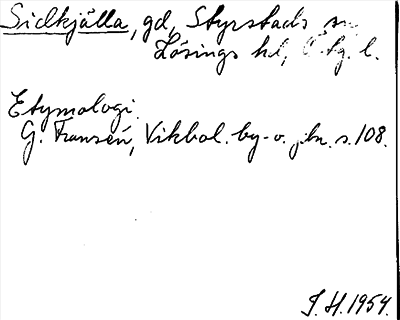 Sidkjälla, gd, Styrstads sn
Lösings hd, Ö.tg. l.
Etymologi.
G. Franzén, Vikbol. by- o. gbn. s. 108.
J. H. 1954.